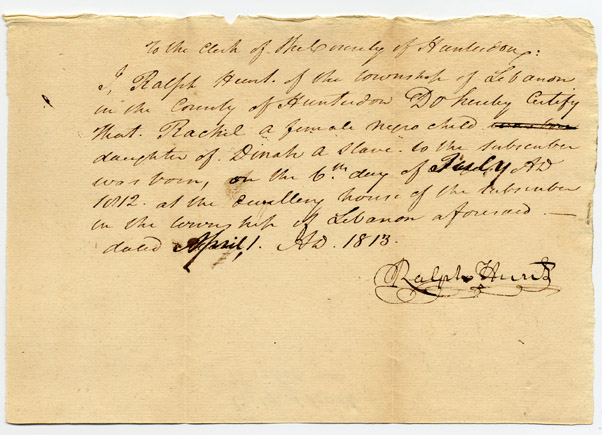 To the Clerk of the County of Hunterdon:
I, Ralph Hunt. of the township of Lebanon
in the County of Hunterdon Do hereby Certify
that. Rachel a female negro child was born
daughter of. Dinah a slave. to the subscriber
was born, on the 6th day of July AD
1812. at the dwelling house of the subscriber
in the township of Lebanon aforesaid —
dated April 1. AD. 1813.
Ralph Hunt